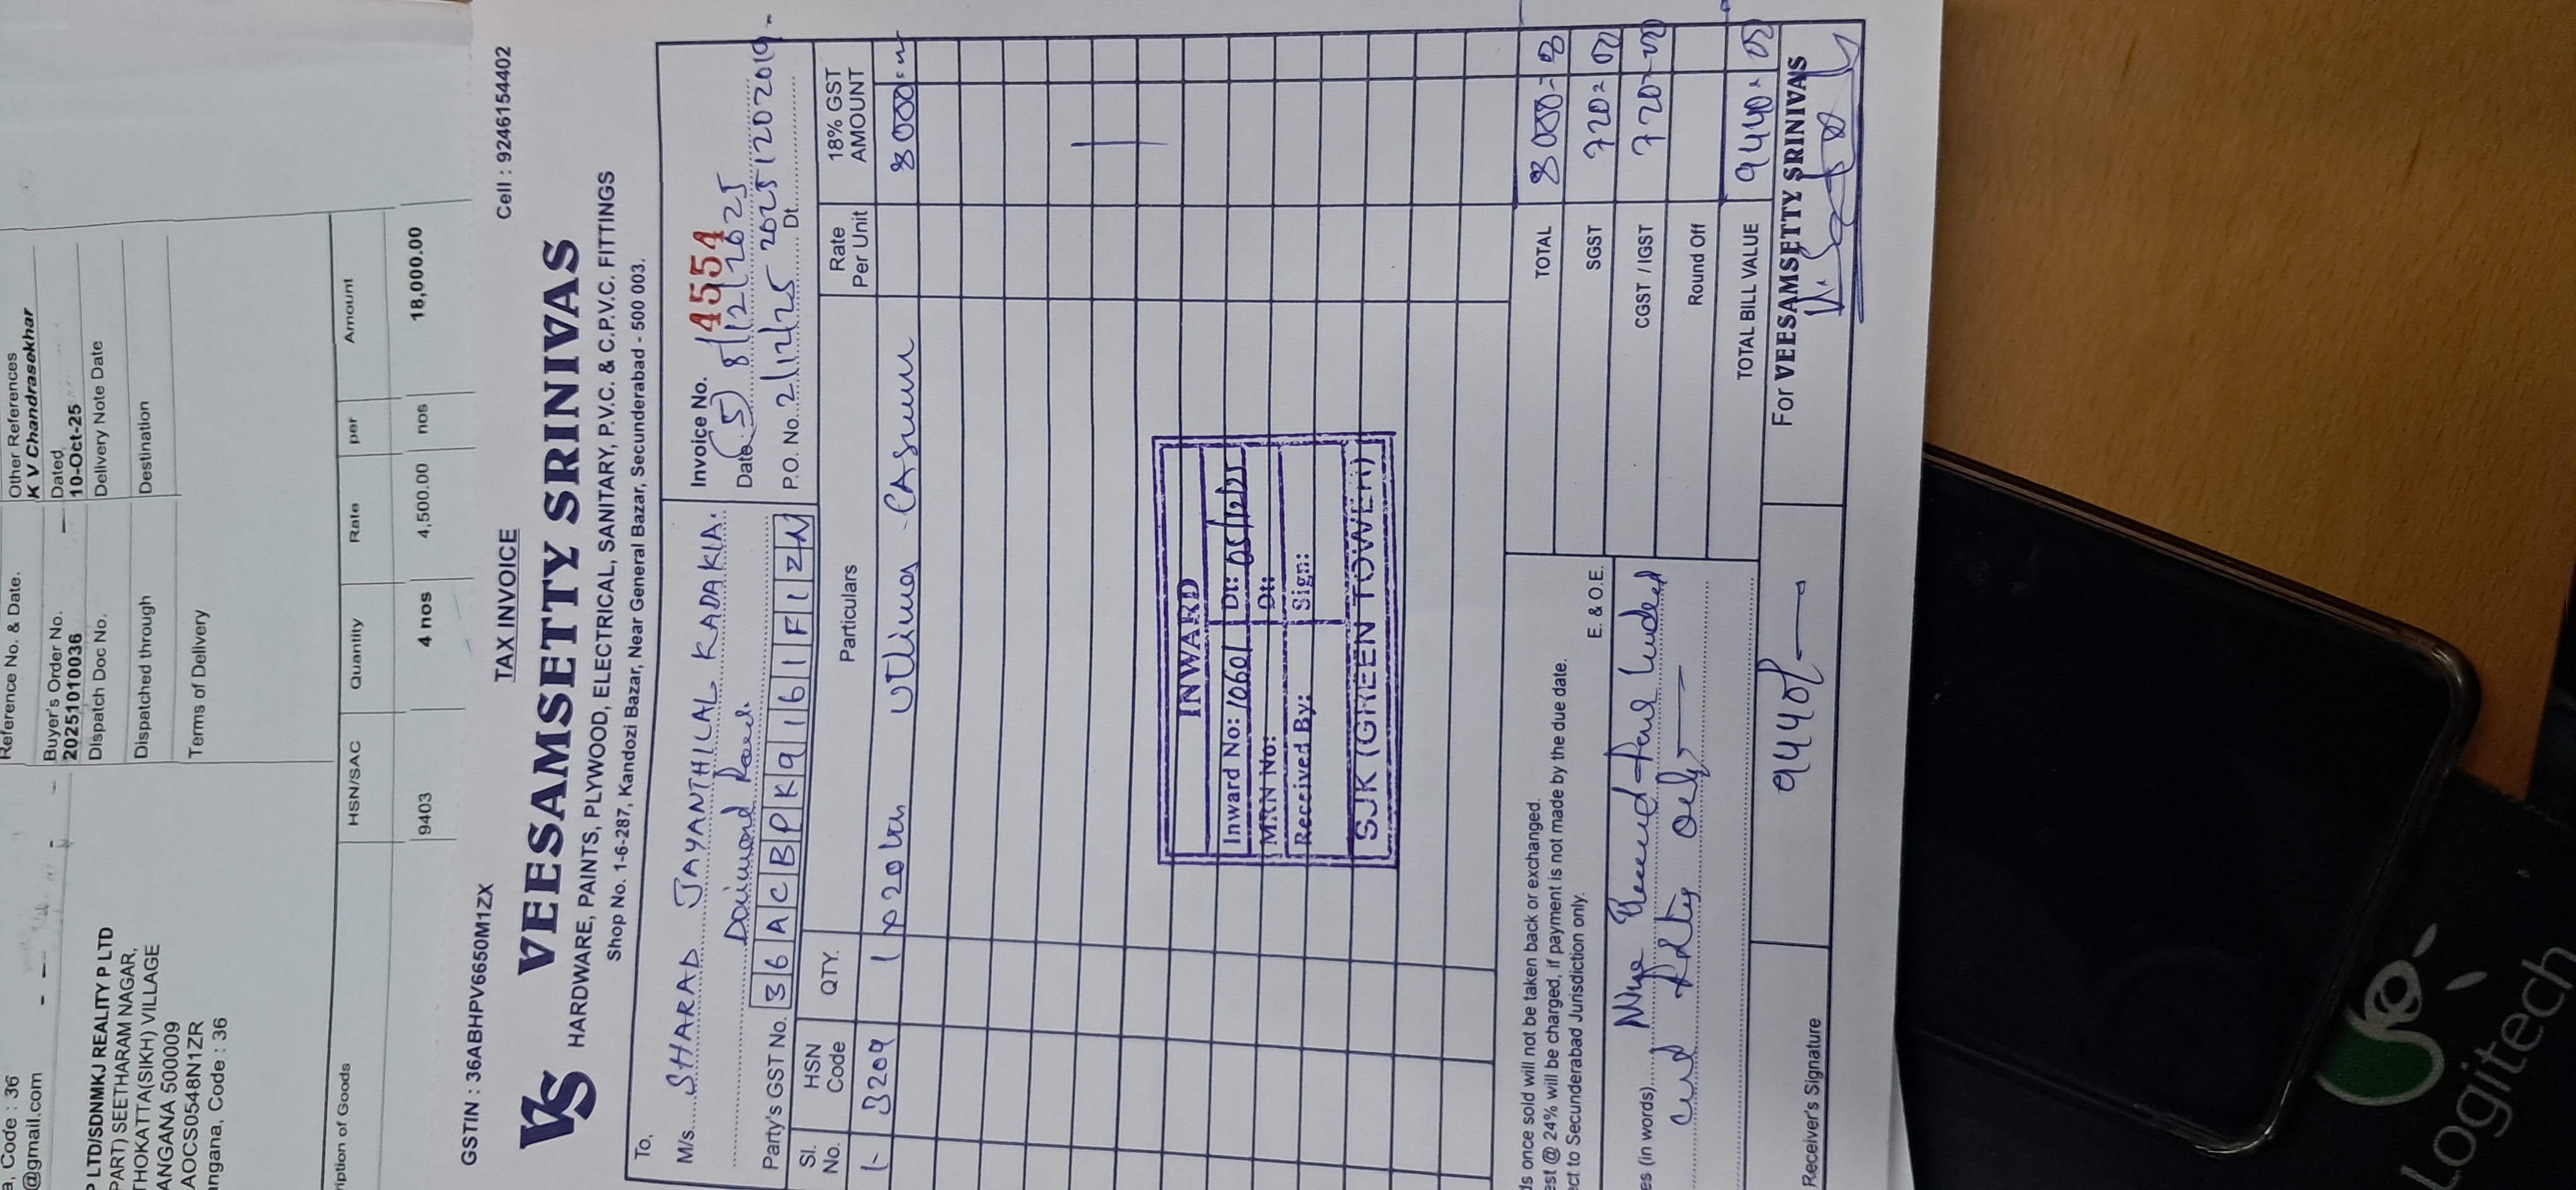 Reference No. & Date.
Other References
K V Chandrasekhar
Buyer's Order No.
Dated
20251010036
10-Oct-25
Dispatch Doc No.
Delivery Note Date
Dispatched through
Destination
Terms of Delivery
a, Code : 36
@gmail.com
P LTD/SDNMKJ REALITY P LTD
PART) SEETHARAM NAGAR,
THOKATTA(SIKH) VILLAGE
ANGANA 500009
AOCS0548N1ZR
angana, Code : 36
ription of Goods
HSN/SAC
Quantity
Rate
per
Amount
9403
4 nos
4,500.00
nos
18,000.00
GSTIN : 36ABHPV6650M1ZX
TAX INVOICE
Cell : 9246154402
VS VEESAMSETTY SRINIVAS
HARDWARE, PAINTS, PLYWOOD, ELECTRICAL, SANITARY, P.V.C. & C.P.V.C. FITTINGS
Shop No. 1-6-287, Kandozi Bazar, Near General Bazar, Secunderabad - 500 003.
To,
M/s. SHARAD JAYANTHILAL KADAKIA.
Party's GST No. 36ACBPK9161F1ZN
Invoice No. 4554
Date 8/12/2025
P.O. No. 2/12/25 Dt. 20251202019
Sl. No.
HSN Code
QTY.
Particulars
Rate Per Unit
18% GST AMOUNT
1-
3209
1
8000
INWARD
Inward No: 10601
Dt: 05/12/25
MRN No:
Dt:
Received By:
Sign:
SJK (GREEN TOWER)
ds once sold will not be taken back or exchanged.
est @ 24% will be charged, if payment is not made by the due date.
ect to Secunderabad Jurisdiction only.
E. & O.E.
TOTAL 8000
SGST 720
CGST / IGST 720
Round Off
TOTAL BILL VALUE 9440
es (in words)
only
Receiver's Signature
9440/-
For VEESAMSETTY SRINIVAS
Logitech